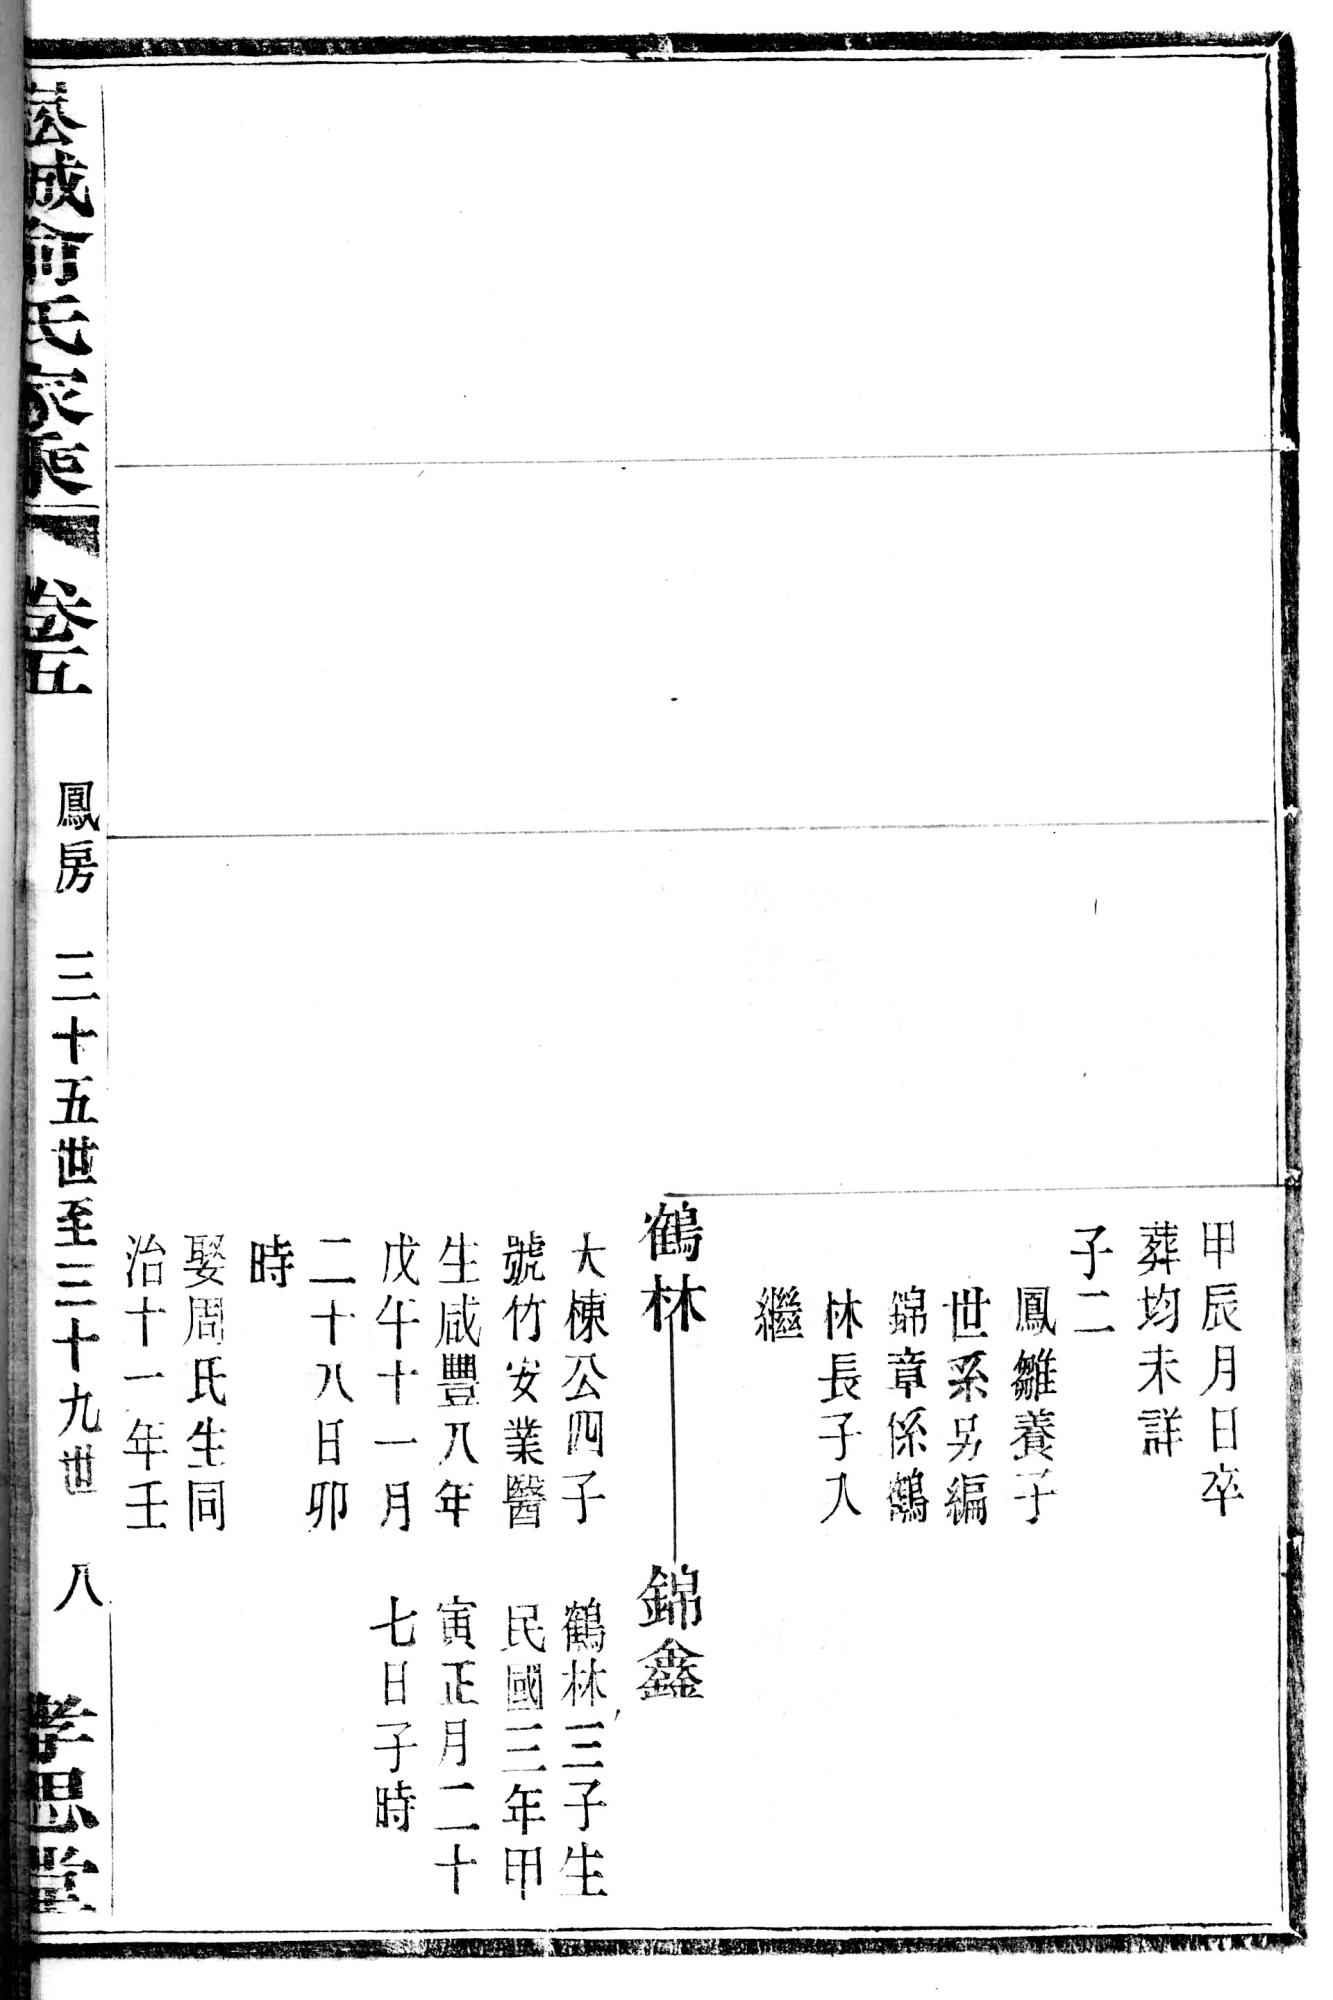 甲辰月日卒
葬均未詳
子二
鳳雛養子
世系另編
錦章係鶴
林長子入
繼
鶴林
大棟公四子
號竹安業醫
生咸豐八年
戊午十一月
二十八日卯
時
娶周氏生同
治十一年壬
錦鑫
鶴林三子生
民國三年甲
寅正月二十
七日子時
崧城俞氏家乘
卷五
鳳房
三十五世至三十九世
八
孝思堂